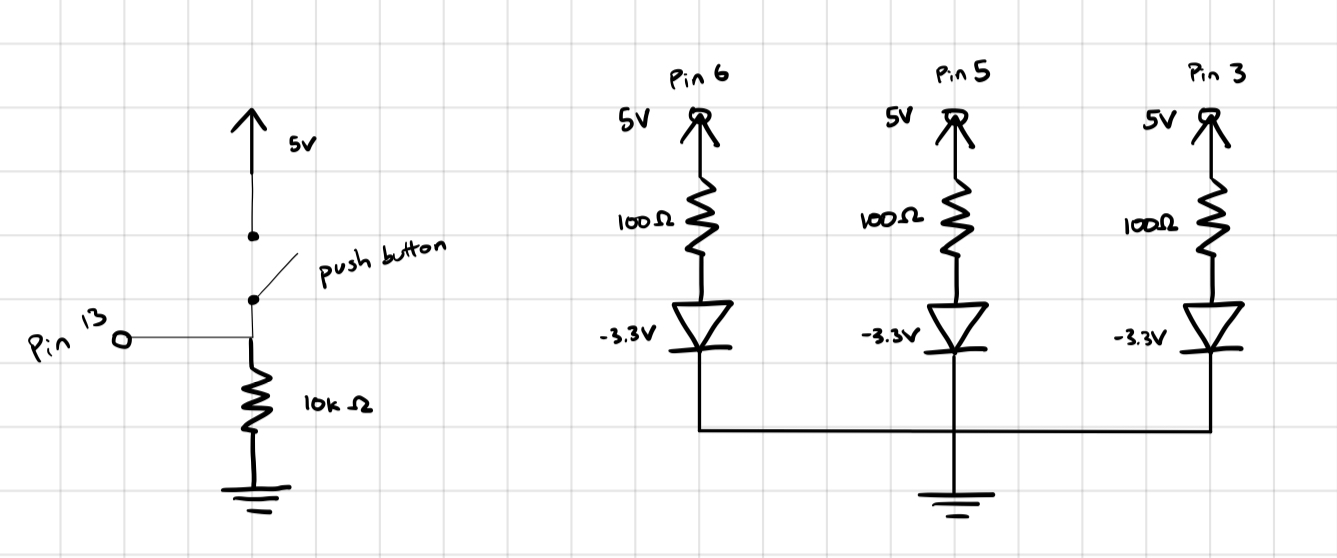 5V
push button
Pin 13
10k Ω
Pin 6
5V
100Ω
-3.3V
Pin 5
5V
100Ω
-3.3V
Pin 3
5V
100Ω
-3.3V